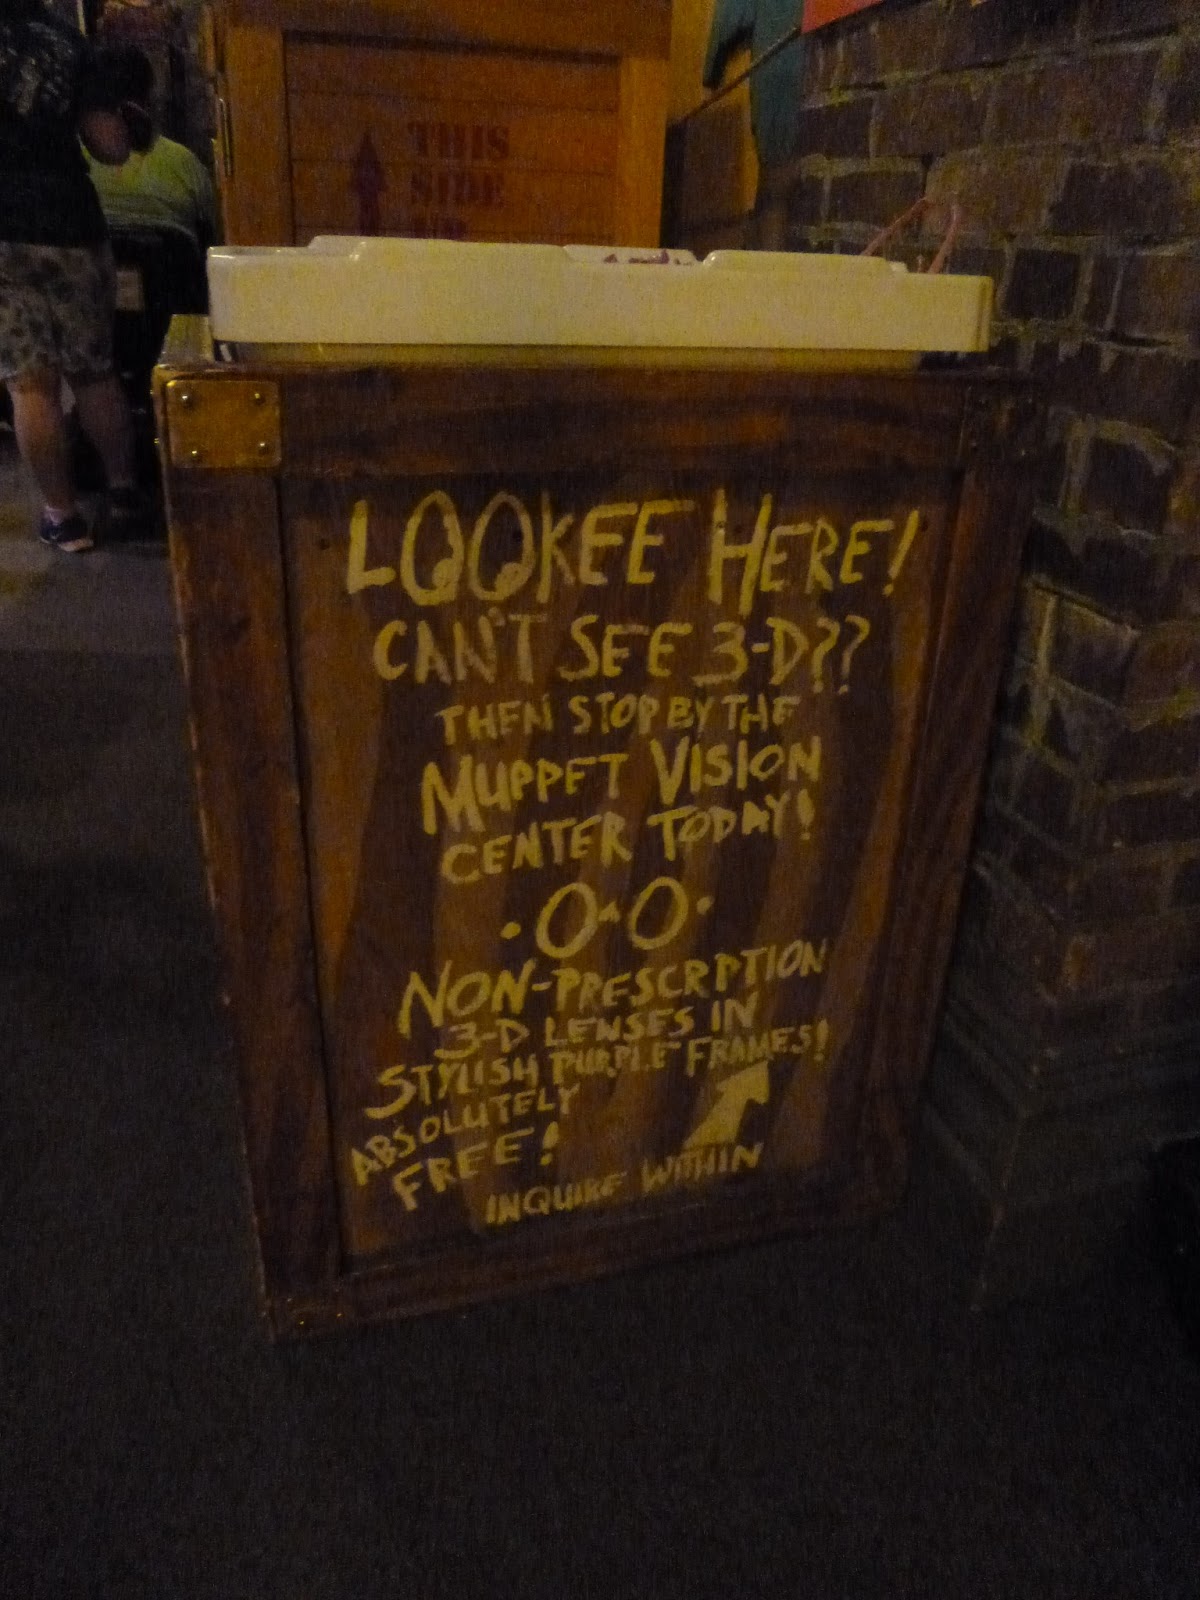 THIS
SIDE
UP
LOOKEE HERE!
CAN'T SEE 3-D??
THEN STOP BY THE
MUPPET VISION
CENTER TODAY!
NON-PRESCRPTION
3-D LENSES IN
STYLISH PURPLE FRAMES!
ABSOLUTELY
FREE!
INQUIRE WITHIN